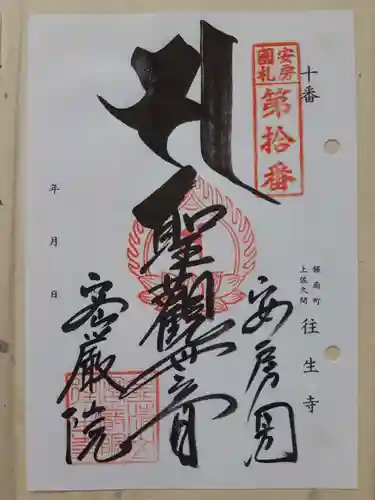 十番
安房
國札
第拾番
鋸南町
上佐久間
往生寺
安房国
サ
聖観世音
密厳院
年月日